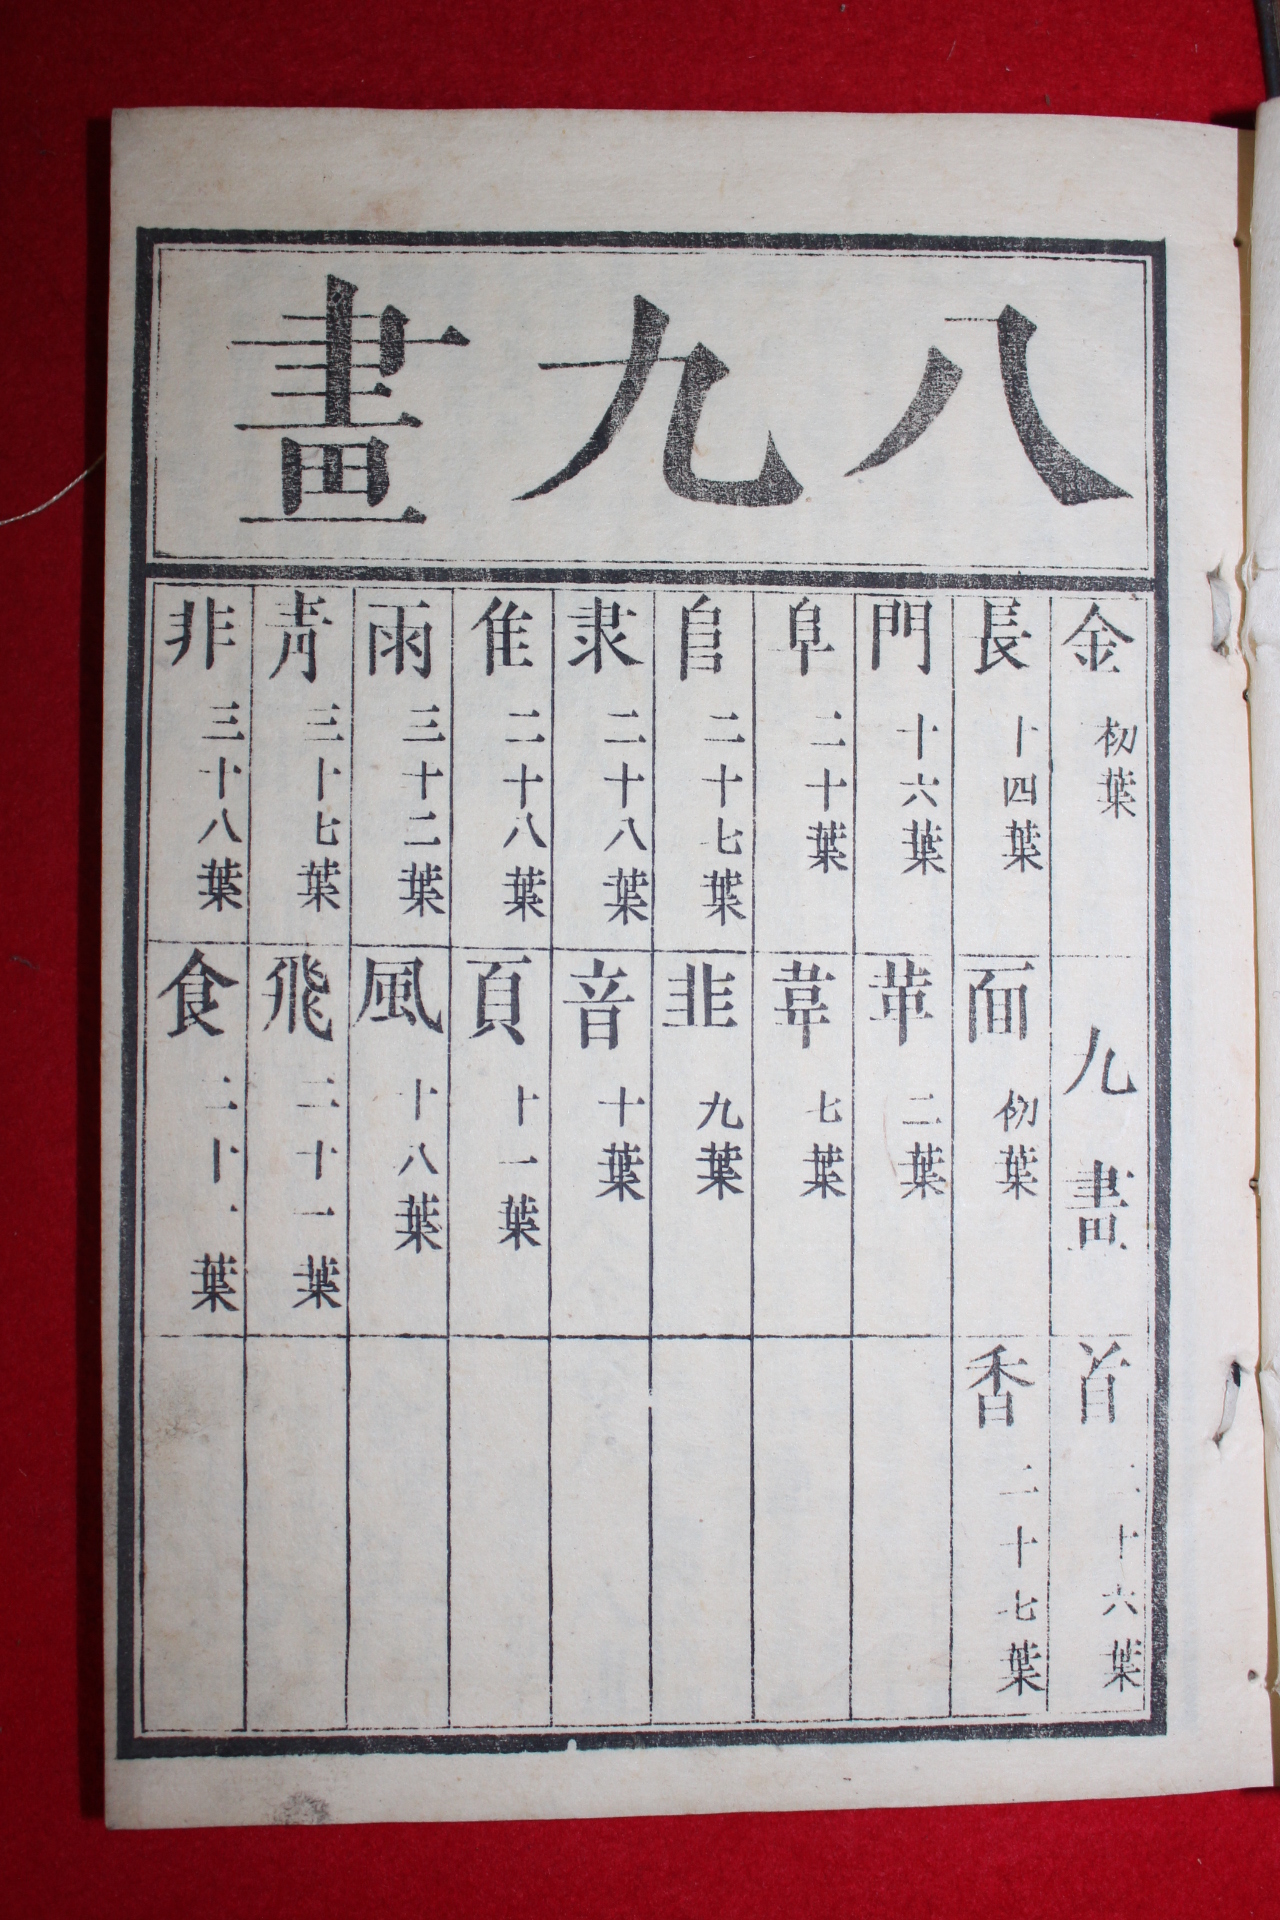 八九畫
金 初葉
長 十四葉
門 十六葉
阜 二十葉
𨸏 二十七葉
隶 二十八葉
隹 二十八葉
雨 三十二葉
靑 三十七葉
非 三十八葉
九畫
面 初葉
革 二葉
韋 七葉
韭 九葉
音 十葉
頁 十一葉
風 十八葉
飛 二十一葉
食 二十一葉
首 二十六葉
香 二十七葉